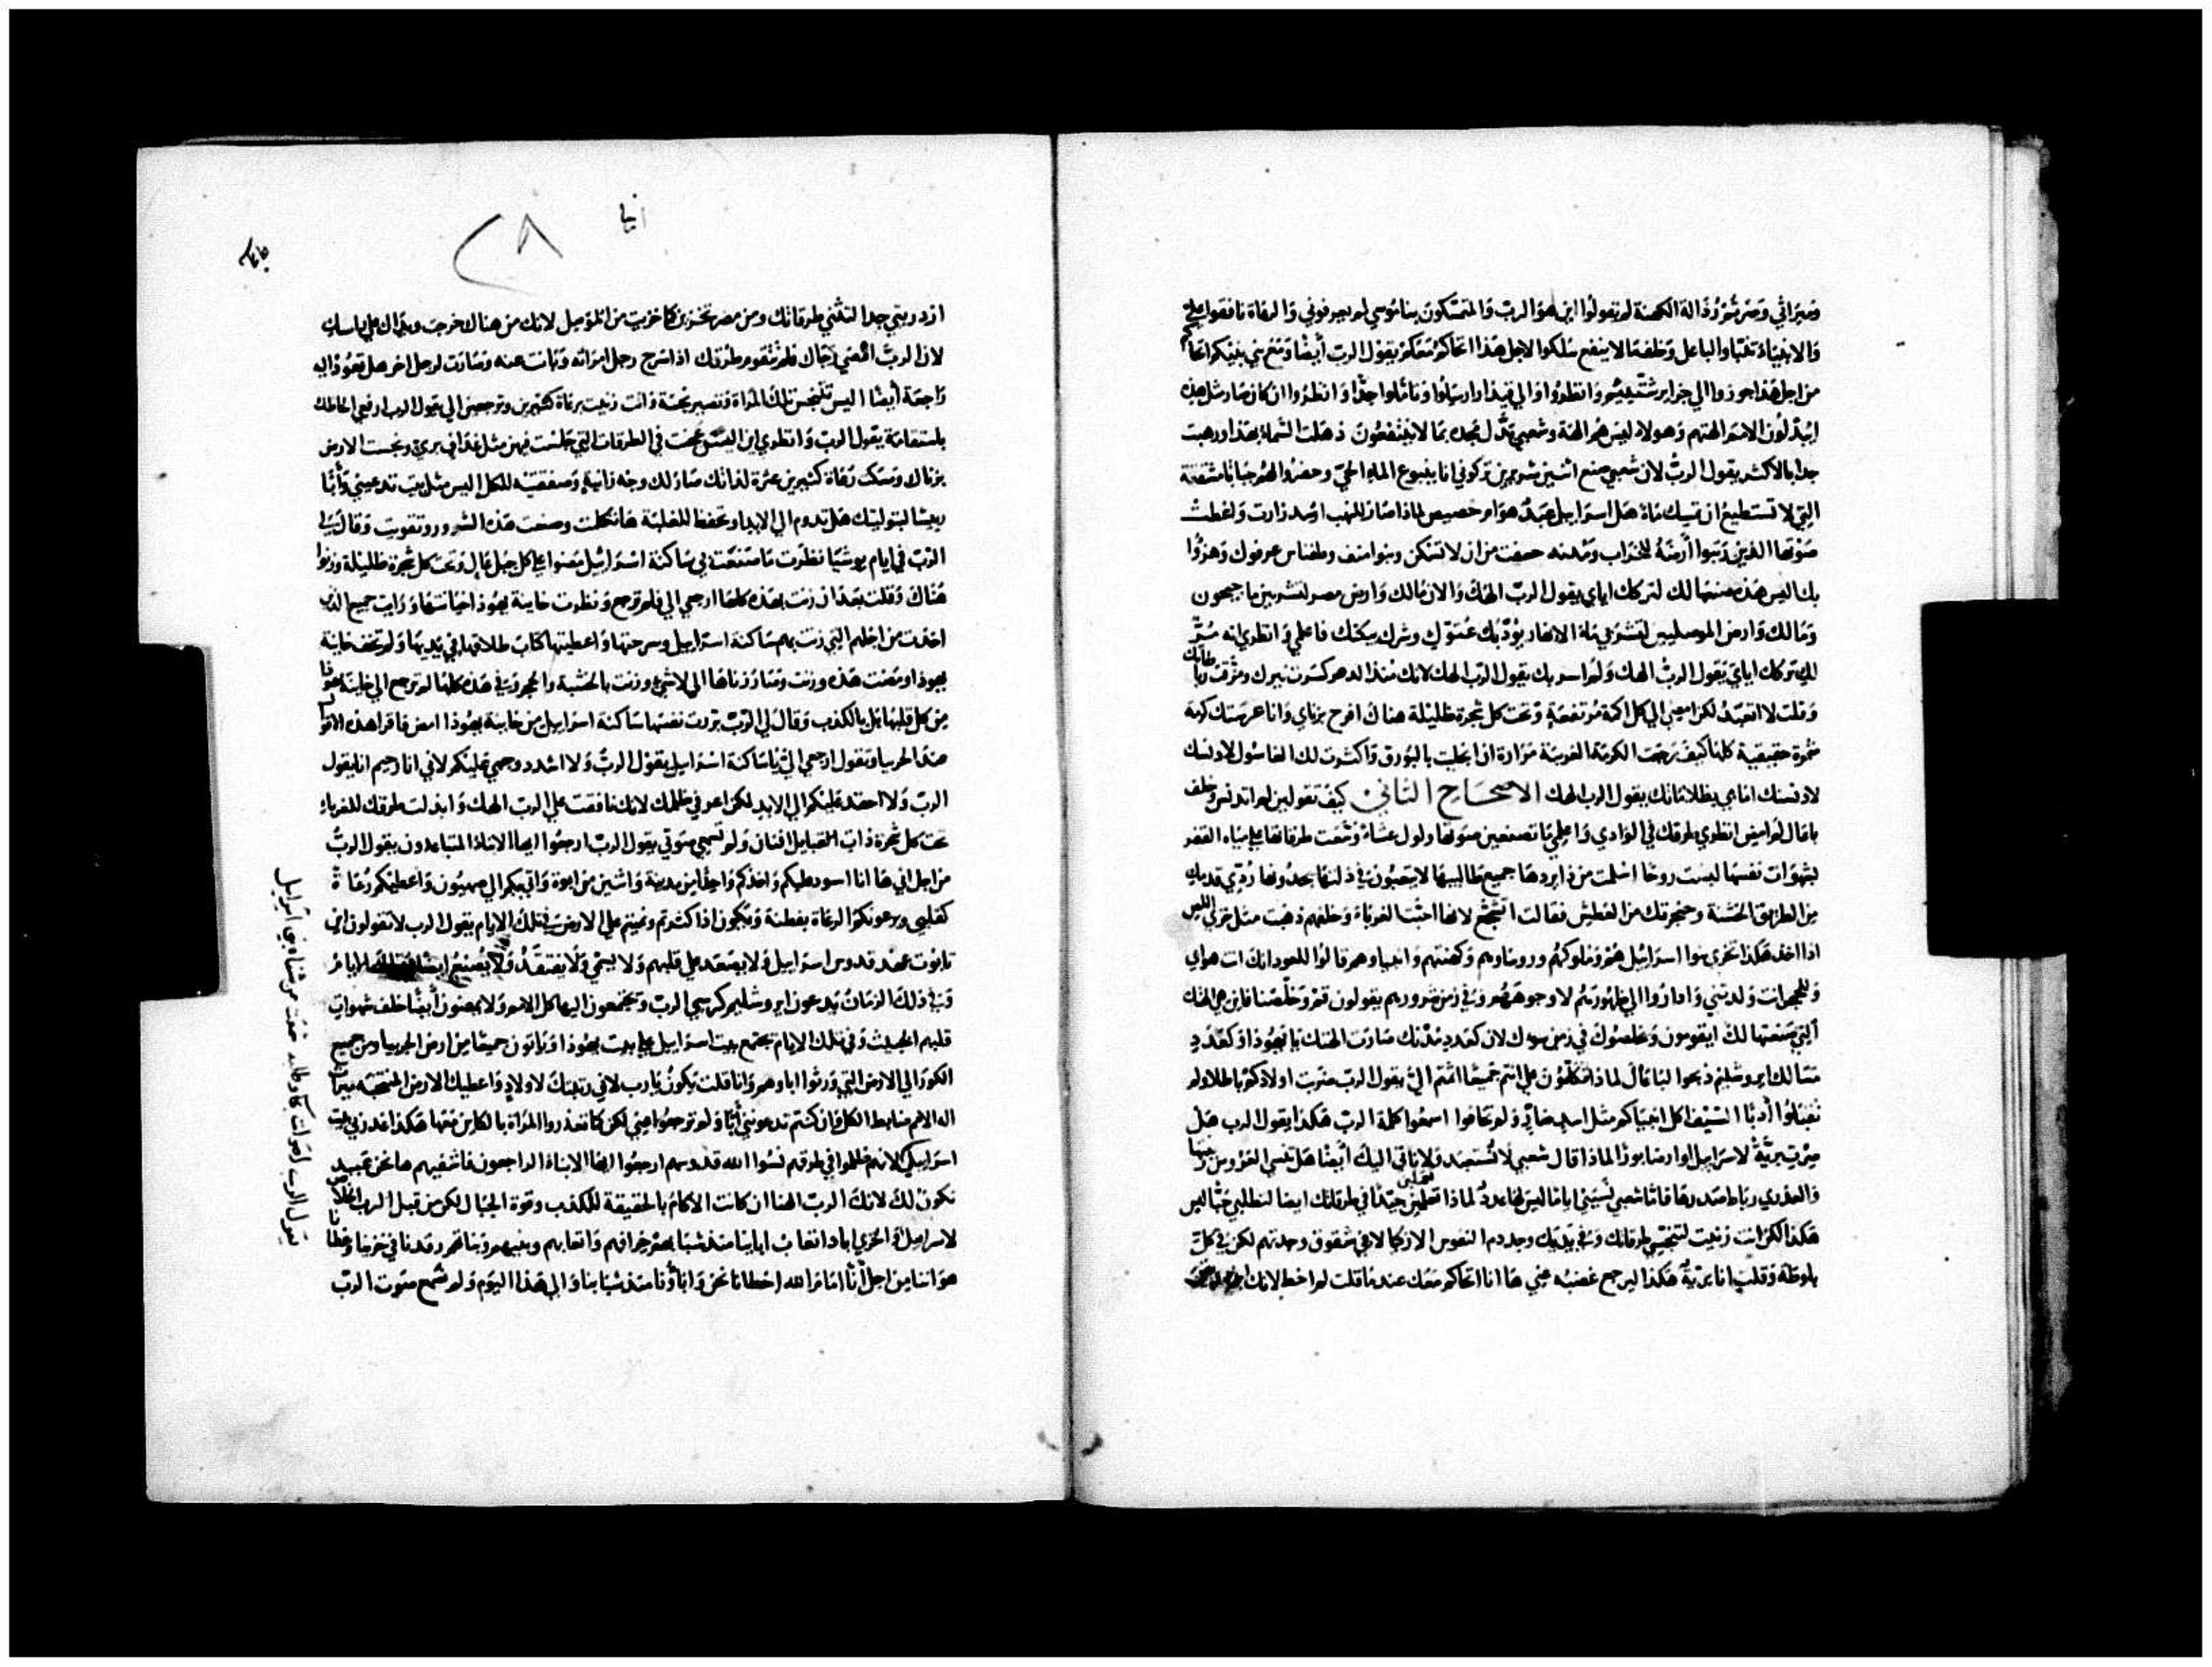 وميراثي وصيرتموه رذالة الكهنة لم تقولوا اين هو الرب والمتمسكون بناموسي لم يعرفوني والرعاة نافقوا علي
والانبياء تنبأوا بالباعل وخلف ما لا ينفع سلكوا لاجل هذا احاكمكم يقول الرب أيضا ومع بني بنيكم
من اجل هذا جوزوا الي جزاير وانظروا والي قيدار ارسلوا وتاملوا جدا وانظروا ان كان صار مثل هذه
ايبدلون الامم الهتهم وهولاء ليس هم الهة وشعبي بدل مجده بما لا ينتفعون ذهلت السماء بهذا ورهبت
جدا بالاكثر يقول الرب لان شعبي صنع اثنين شريرين تركوني انا ينبوع الماء الحي وحفروا لهم جبابا مشققة
التي لا تستطيع ان تمسك ماء هل اسرايل عبد هو او خصيص لماذا صار للنهب اسد زارت واعطت
صوتها الذين رتبوا أرضه للخراب ومدنه من ان لا تسكن وبنوا منف عرفوك وهزوا
بك اليس هذه صنعها لك لتركك اياي يقول الرب الهك والان مالك وارض مصر لتشربين ما جيحون
ومالك وارض الموصليين لتشربي ماء الانهار يؤدبك عتوك وشرك يبكتك فاعلمي وانظري انه مر
لك تركك اياي يقول الرب الهك ولم اسر بك يقول الرب الهك لانك منذ الدهر كسرت نيرك ومزقت رباطاتك
وقلت لا اتعبد لكن امضي الي كل اكمة مرتفعة وتحت كل شجرة ظليلة هناك افرح بزناي وانا غرستك كرمة
ثمرة حقيقية كلها كيف رجعت الكرمة الغريبة مرارة اذا بالبورق واكثرت لك الغاسول
امامي بظلاماتك يقول الرب الهك الاصحاح الثاني كيف تقولين لم اتدنس وخلف
باعال لم امض انظري طرقك في الوادي واعلمي ما تصنعين صوتها ولول عشاء وسعت طرقاتها علي مياه القفر
بشهوات نفسها روحا اسلمت من ذا يردها جميع طالبيها لا يتعبون في ذلتها يجدونها ردي قدميك
من الطريق الخشنة وحنجرتك من العطش فقالت اتشجع لانها احبت الغرباء وخلفهم ذهبت مثل خزي اللص
اذا اخذ هكذا تخزى بنوا اسرائيل هم وملوكهم وروساوهم وكهنتهم وانبياوهم قالوا للعود انك انت هو ابي
وللحجر انت ولدتني وادا روا الي ظهورهم لا وجوههم وفي زمن شرورهم يقولون قم وخلصنا فاين هي الهتك
التي صنعتها لك ايقومون ويخلصونك في زمن سوك لان كعدد مدنك صارت الهتك يا يهوذا وكعدد
مسالك ايروشليم ذبحوا للباعال لماذا تكلمون علي انتم جميعا اثمتم الي يقول الرب ضربت اولادكم باطلا ولم
تقبلوا أدبا السيف اكل انبياكم مثل اسد ولم تخافوا اسمعوا كلمة الرب هكذا يقول الرب هل
صرت برية لاسرايل او ارضا بورا لماذا قال شعبي لا نستعبد ولا ناتي اليك أيضا هل تنسى العروس زينتها
والعذري رباط صدرها فاما شعبي نسيني اياما ليس لها عدد لماذا تعملين جيدا في طرقاتك ايضا لتطلبي حبا ليس
هكذا لكن انت زنيت لتنجسي طرقاتك وفي يديك وجد دم النفوس الازكيا لا في شقوق وجدتهم لكن في كل
بلوطة وقلت انا برية هكذا ليرجع غضبه عني ها انا احاكم معك عند ما قلت لم اخط لانك
ايضا
٢٨
ازدريتي جدا لتثني طرقاتك ومن مصر تخزين كما خزيت من الموصل لانك من هناك خرجت ويداك علي راسك
لان الرب اقصي رجاك فلم تتقوم طرقك اذا سرح رجل امراته وبانت عنه وصارت لرجل اخر هل تعود اليه
راجعة أيضا اليس تتنجس تلك المراة وتصير نجسة وانت زنيت برعاة كثيرين وترجعين الي يقول الرب ارفعي الحاظك
باستقامة يقول الرب وانظري اين في الطرقات التي جلست فيهن مثل غداف بري ونجست الارض
بزناك ومسكت رعاة كثيرين عثرة لذاتك صار لك وجه زانية للكل اليس مثل بيت تدعيني وأبا
رييسا لبتوليتك هل تدوم الي الابد او تحفظ للغلبة ها تكلمت وصنعت هذه الشرور وتقويت وقال لي
الرب في ايام يوشيا نظرت ما صنعت بي ساكنة اسرائيل مضوا علي كل جبل عال وتحت كل شجرة ظليلة وزنوا
هناك وقلت بعد ان زنت بهذه كلها ارجعي الي فلم ترجع ونظرت خاينة يهوذا خيانتها ورايت جميع الذين
اخذت من اجلهم التي زنت بهم ساكنة اسرايل وسرحتها واعطيتها كتاب طلاقها في يديها ولم تخف خاينة
يهوذا ومضت هذه وزنت وصار زناها الي لا شيء وزنت بالخشبة والحجر وفي هذه كلها لم ترجع الي خاينة يهوذا
من كل قلبها بل بالكذب وقال لي الرب بررت نفسها ساكنة اسرايل من خاينة يهوذا امض فاقرا هذه الاقوال
عند الجربيا وتقول ارجعي الي يا ساكنة اسرايل يقول الرب ولا اشدد وجهي عليكم لاني انا رحيم انا يقول
الرب ولا احقد عليكم الي الابد لكن اعرفي ظلمك لانك نافقت علي الرب الهك وابدلت طرقك للغرباء
تحت كل شجرة ذات افنان ولم تسمعي صوتي يقول الرب ارجعوا ايها الابناء المتباعدون يقول الرب
من اجل اني ها انا اسود عليكم واخذكم واحدا من مدينة واثنين من ابوة واتي بكم الي صهيون واعطيكم رعاة
كقلبي ويرعونكم الرعاة بفطنة ويكون اذا كثرتم ونميتم علي الارض في تلك الايام يقول الرب لا تقولون اين
تابوت عهد قدوس اسرايل ولا يصعد علي قلبهم ولا يسمي ولا يفتقد ولا يصنع ايضا
وفي ذلك الزمان يدعون ايروشليم كرسي الرب وتجتمعون اليها كل الامم ولا يمضون أيضا خلف شهوات
قلبهم الخبيث وفي تلك الايام تجتمع بيت اسرايل علي بيت يهوذا وياتون جميعا من ارض الجربيا ومن جميع
الكور الي الارض التي ورثوا اباوهم وانا قلت يكون يا رب لاني رتبتك لاولاد واعطيك الارض المنتخبة ميراث
اله الامم ضابط الكل فان كنتم تدعونني أبا ولم ترجعوا عني لكن كما تغدر المراة بالكاين معها هكذا غدر بي بيت
لانهم ظلموا في طرقهم نسوا الله قدوسهم ارجعوا ايها الابناء الراجعون فاشفيهم ها نحن عبيد
نكون لك لانك الرب الهنا ان كانت الاكام بالحقيقة للكذب وقوة الجبال لكن من قبل الرب الخلاص
لاسرايل والخزي اباد اتعاب اباينا منذ شبابهم خرافهم واتعابهم وبنيهم وبناتهم رقدنا في خزينا وغطانا
هواننا من اجل أننا امام الله اخطانا نحن واباؤنا منذ شبابنا والي هذا اليوم ولم نسمع صوت الرب